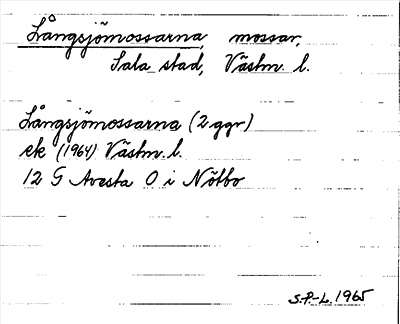 Långsjömossarna, mossar,
Sala stad, Västm. l.
Långsjömossarna (2 ggr)
ek (1964) Västm. l.
12 G Avesta O i Nötbo
S.P.-L. 1965